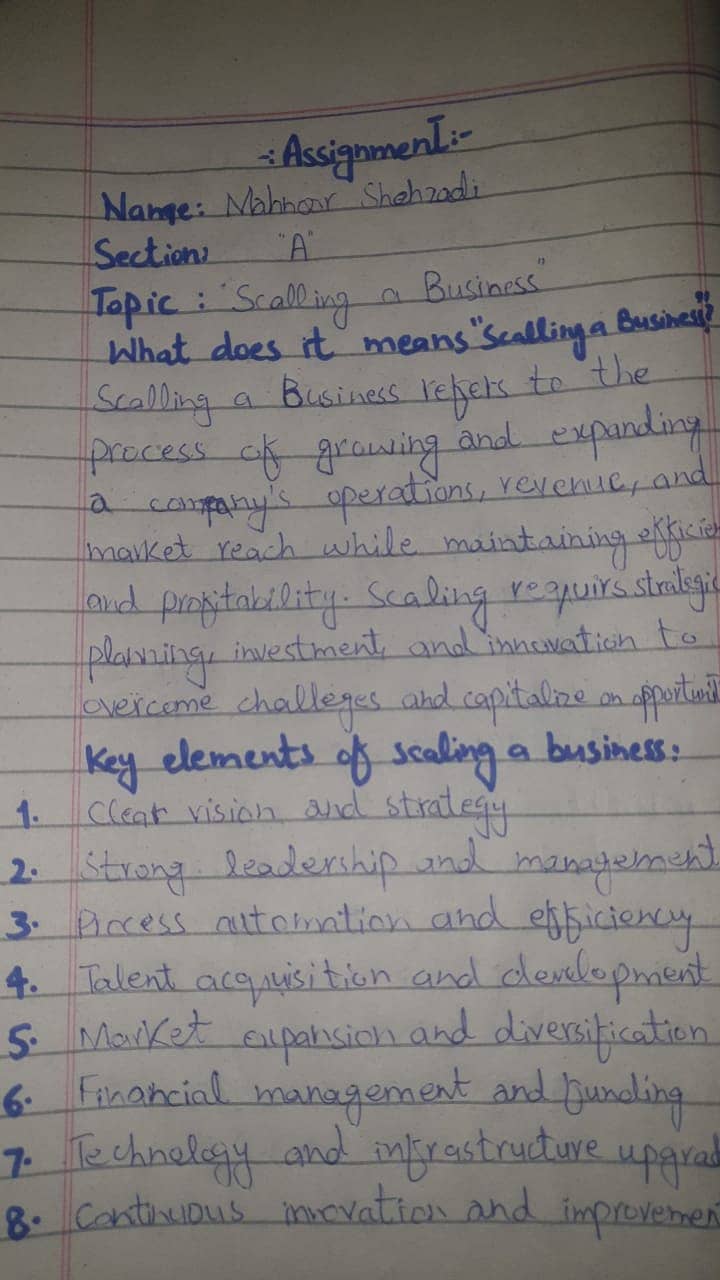 -: Assignment:-
Name: Mahnoor Shehzadi
Section: "A"
Topic : "Scalling a Business"
What does it means "Scalling a Business"?
Scalling a Business refers to the
process of growing and expanding
a company's operations, revenue, and
market reach while maintaining efficien
and profitability. Scaling requirs strategic
planning, investment, and innovation to
overcome challeges and capitalize on opportuni
Key elements of scaling a business:
1. Clear vision and strategy
2. Strong leadership and management
3. Process automation and efficiency
4. Talent acquisition and development
5. Market expansion and diversification
6. Financial management and funding
7. Technology and infrastructure upgrad
8. Continuous innovation and improvemen